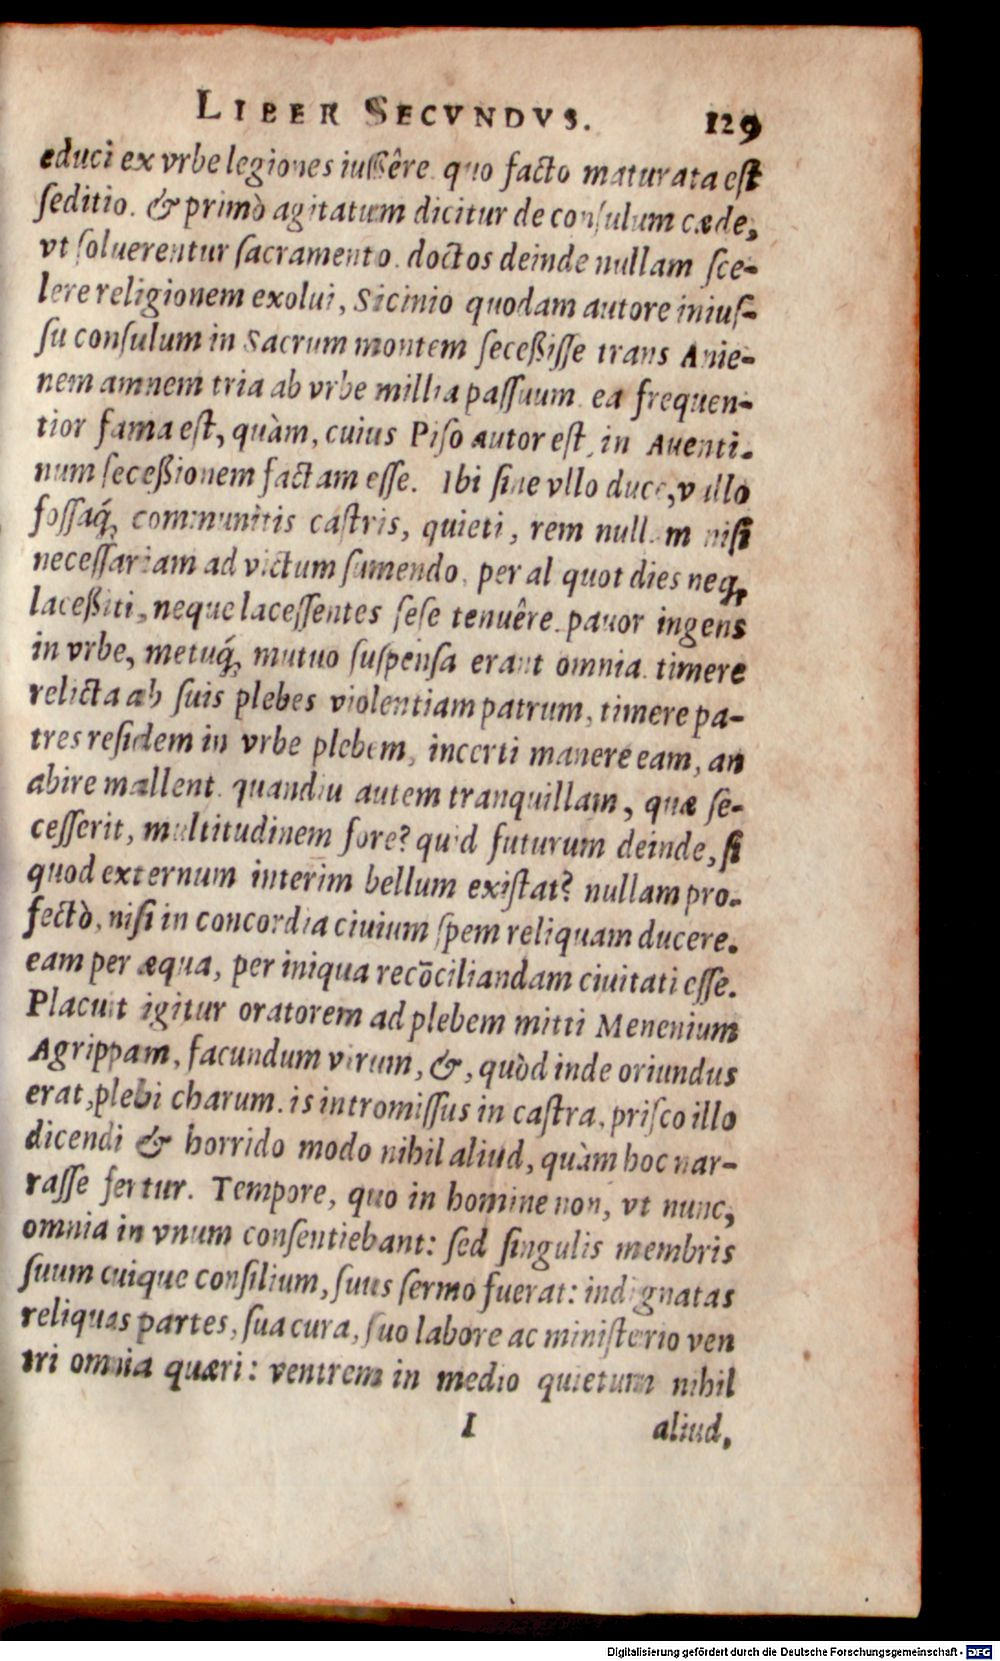 LIBER SECVNDVS. 129
educi ex vrbe legiones iussêre. quo facto maturata est
seditio. & primò agitatum dicitur de consulum cæde,
vt soluerentur sacramento. doctos deinde nullam sce-
lere religionem exolui, Sicinio quodam autore inius-
su consulum in Sacrum montem secessisse trans Anie-
nem amnem tria ab vrbe millia passuum. ea frequen-
tior fama est, quàm, cuius Piso autor est, in Auenti-
num secessionem factam esse. Ibi sine vllo duce, vallo
fossaq́; communitis castris, quieti, rem nullam nisi
necessariam ad victum sumendo, per aliquot dies neq;
lacessiti, neque lacessentes sese tenuêre. pauor ingens
in vrbe, metuq́; mutuo suspensa erant omnia. timere
relicta ab suis plebes violentiam patrum, timere pa-
tres residem in vrbe plebem, incerti manere eam, an
abire mallent. quandiu autem tranquillam, quæ se-
cesserit, multitudinem fore? quid futurum deinde, si
quod externum interim bellum existat? nullam pro-
fectò, nisi in concordia ciuium spem reliquam ducere.
eam per æqua, per iniqua recōciliandam ciuitati esse.
Placuit igitur oratorem ad plebem mitti Menenium
Agrippam, facundum virum, &, quòd inde oriundus
erat, plebi charum. is intromissus in castra, prisco illo
dicendi & horrido modo nihil aliud, quàm hoc nar-
rasse fertur. Tempore, quo in homine non, vt nunc,
omnia in vnum consentiebant: sed singulis membris
suum cuique consilium, suus sermo fuerat: indignatas
reliquas partes, sua cura, suo labore ac ministerio ven
tri omnia quæri: ventrem in medio quietum nihil
I aliud,
Digitalisierung gefördert durch die Deutsche Forschungsgemeinschaft - DFG